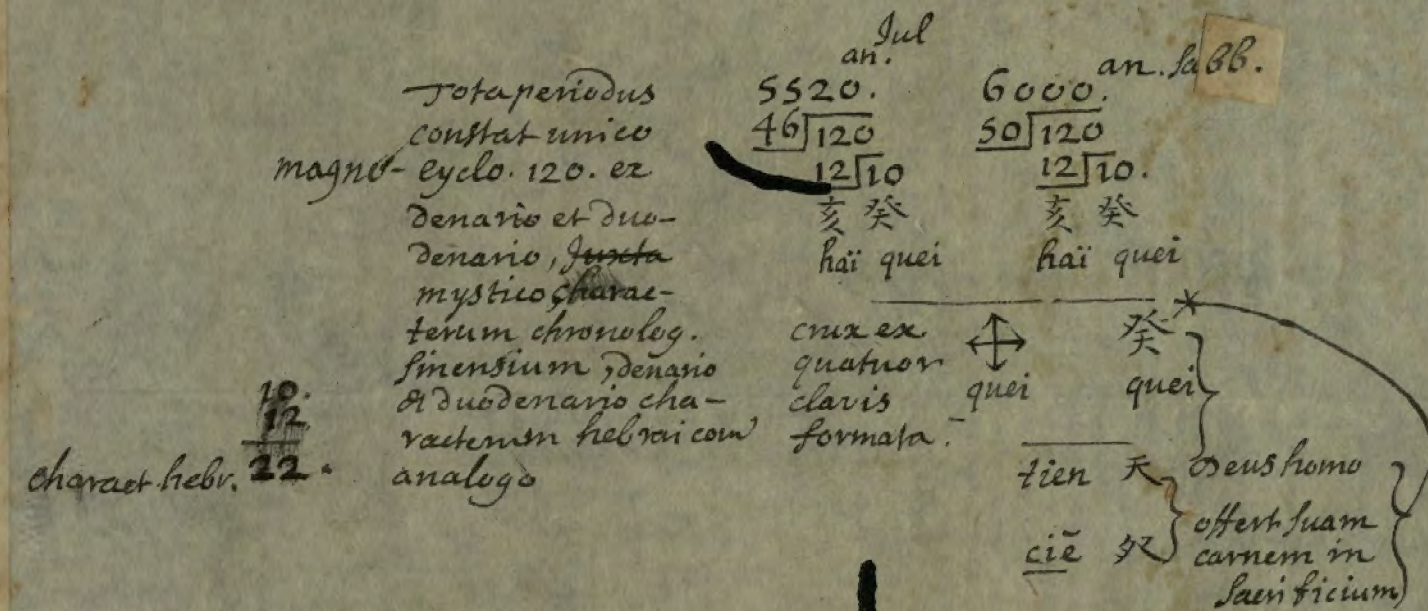 Tota periodus
constat unico
magno- cyclo. 120. ex
denario et duo-
denario, Juxta
mystico charac-
terum chronolog.
sinensium, denario
et duodenario cha-
racterum hebraicorum
analogo
10.
12
charact. hebr. 22.
an. Jul
5520.
46 120
12 10
亥 癸
haï quei
an. sabb.
6000.
50 120
12 10.
亥 癸
haï quei
crux ex
quatuor
clavis
formata.
quei
癸
quei
tien 天 Deus homo
ciē 癶
offert suam
carnem in
sacrificium